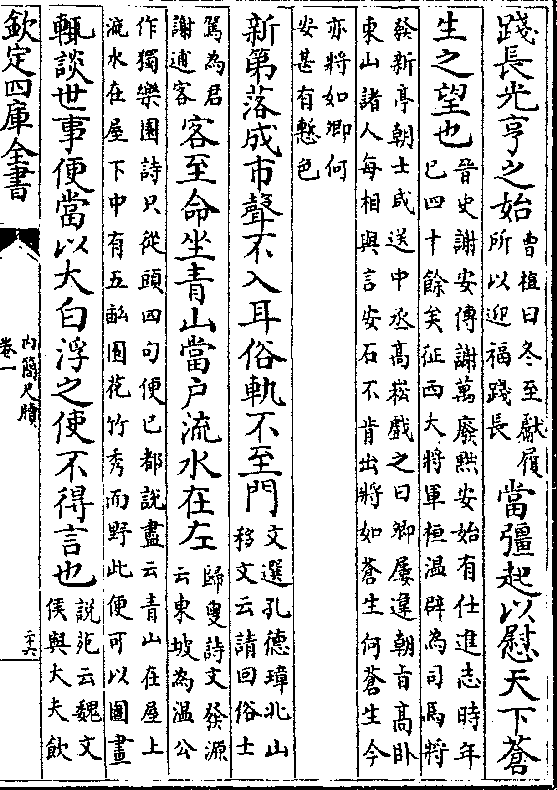 踐長光亨之始
曹植曰冬至獻履
所以迎福踐長
當彊起以慰天下蒼
生之望也
晉史謝安傳謝萬廢黜安始有仕進志時年
已四十餘矣征西大將軍桓温辟為司馬將
發新亭朝士咸送中丞高崧戲之曰卿屢違朝旨高卧
東山諸人每相與言安石不肯出將如蒼生何蒼生今
亦將如卿何
安甚有慙色
新第落成市聲不入耳俗軌不至門
文選孔德璋北山
移文云請回俗士
駕為君
謝逋客
客至命坐青山當户流水在左
歸叟詩文發源
云東坡為温公
作獨樂園詩只從頭四句便已都說盡云青山在屋上
流水在屋下中有五畝園花竹秀而野此便可以圖畫
輒談世事便當以大白浮之使不得言也
說苑云魏文
侯與大夫飲
欽定四庫全書
內簡尺牘
卷一
二十六